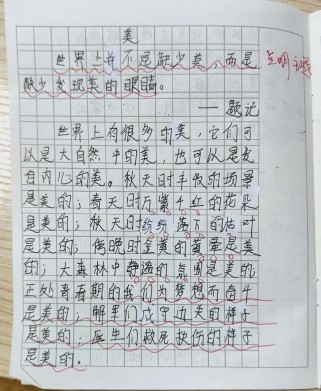 美
世界上并不是缺少美,而是
缺少发现美的眼睛。
点明主题
——题记
世界上有很多的美,它们可
以是大自然中的美,也可以是发
自内心的美。秋天时丰收的场景
是美的;春天时万紫千红的花朵
是美的;秋天时缤纷落下的枯叶
是美的;傍晚时金黄的黄昏是美
的;大森林中静谧的氛围是美的,
正处青春期的我们为梦想而奋斗
是美的;解军们戍守边关的样子
是美的;医生们救死扶伤的样子
是美的。